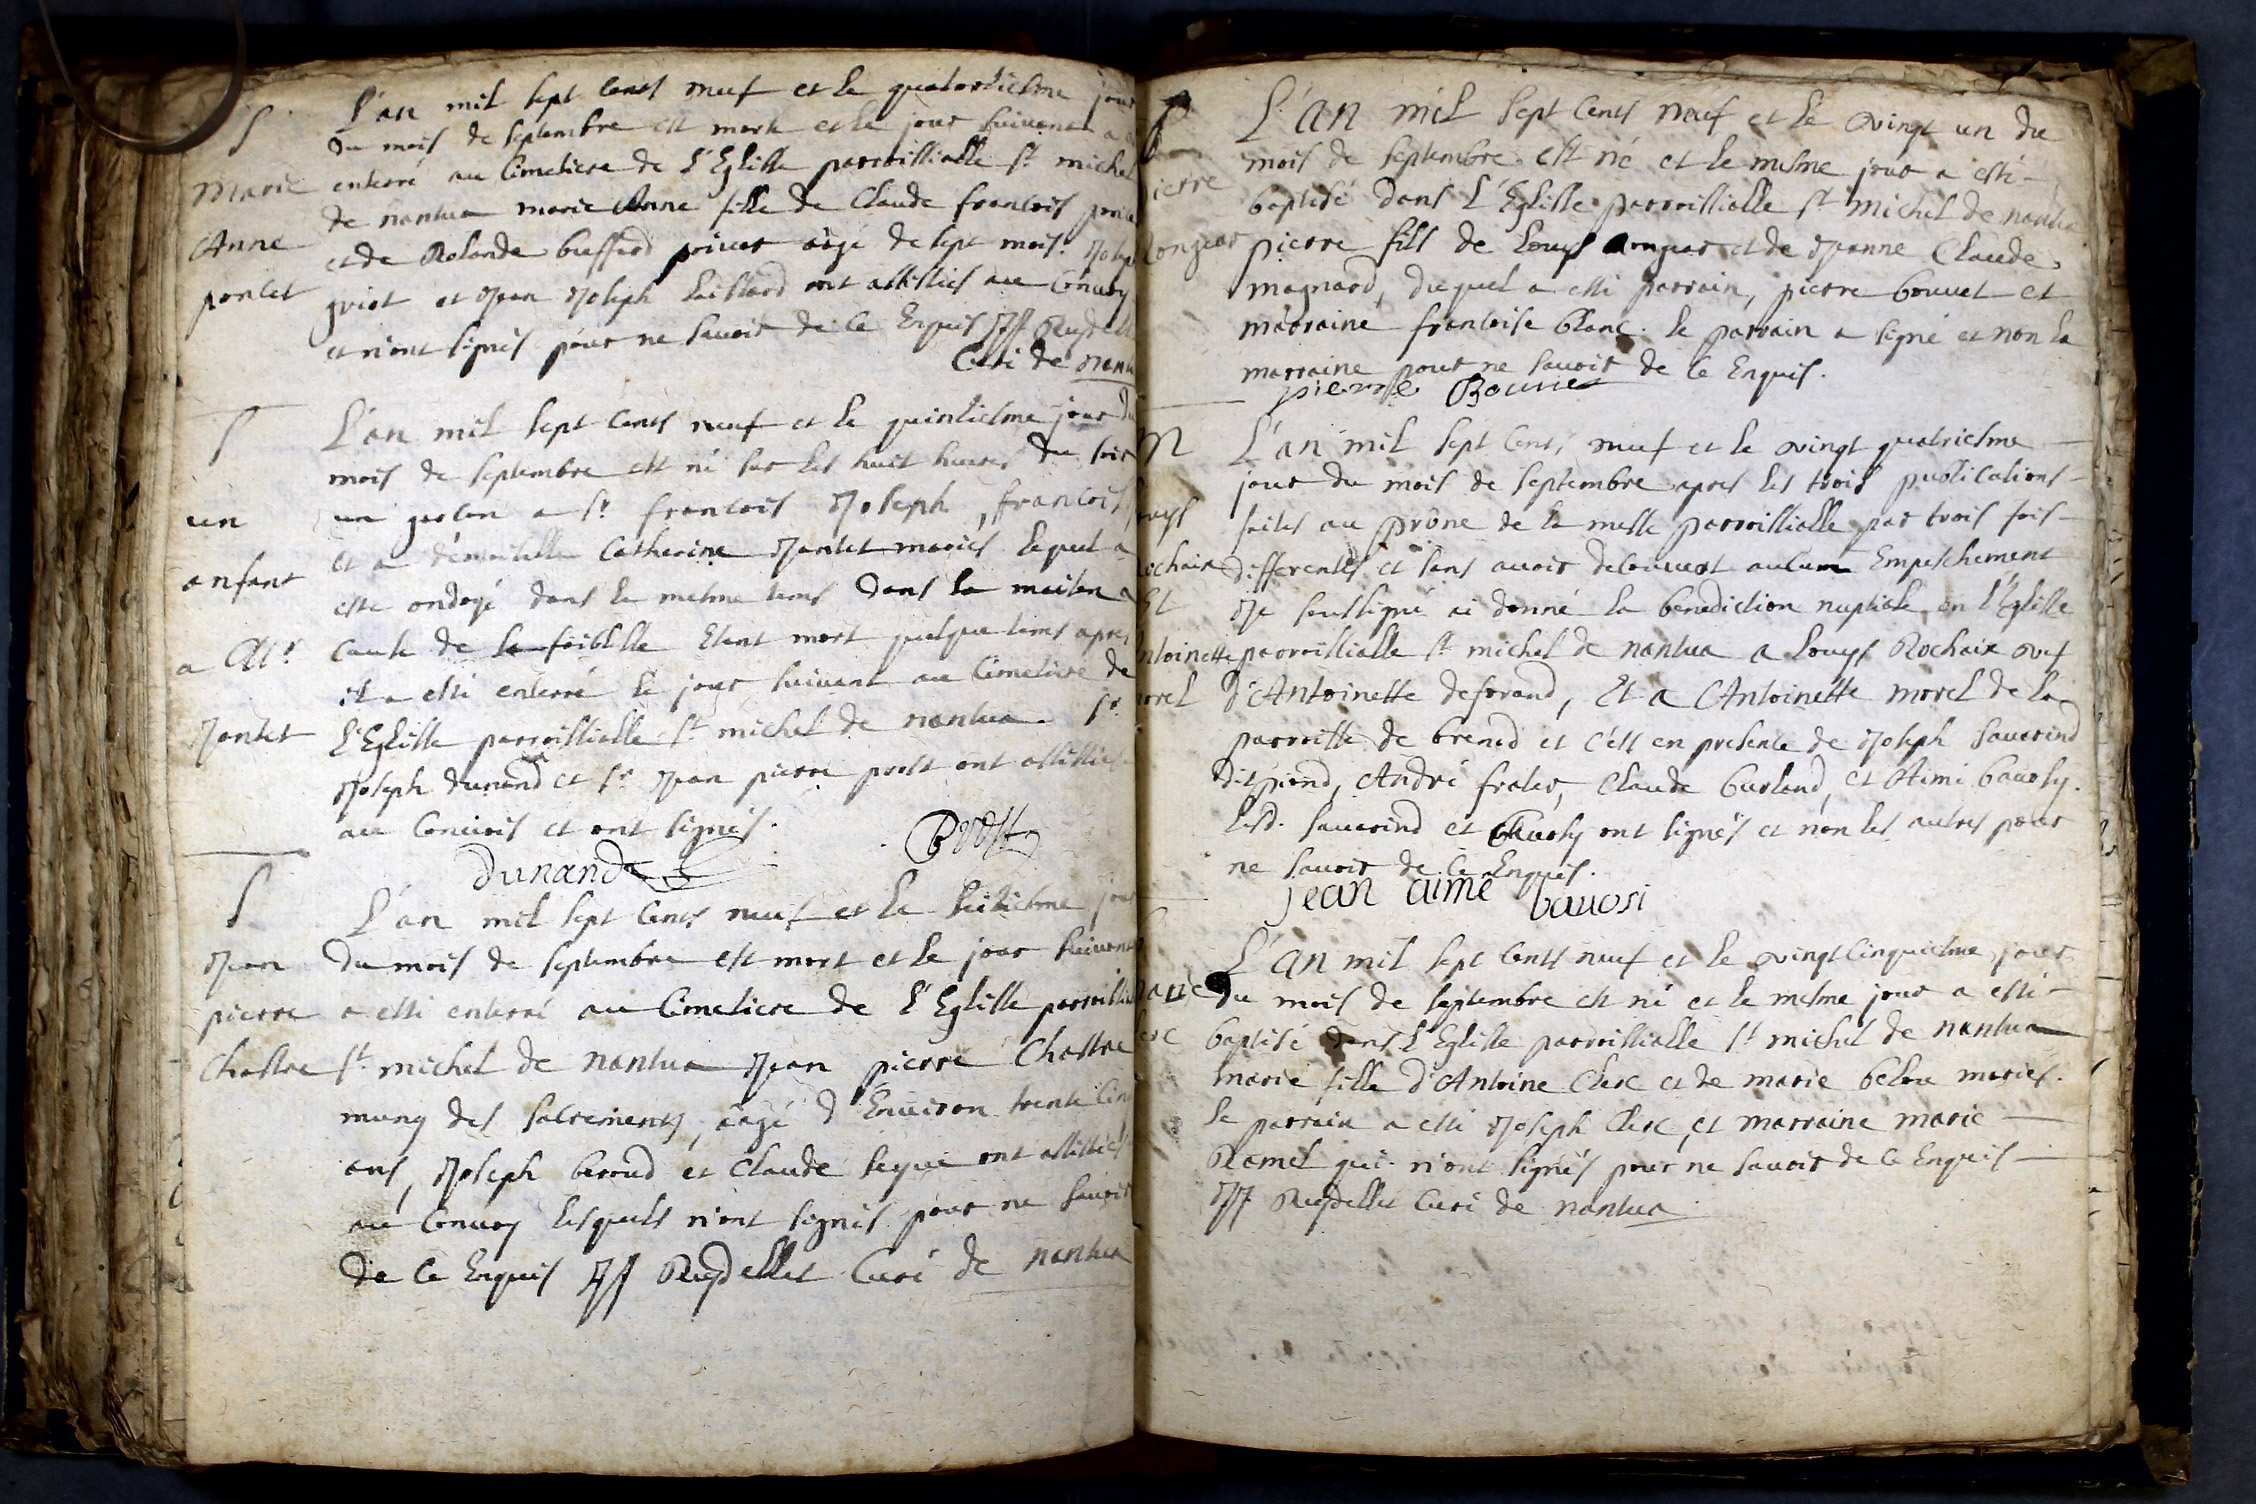 L'an mil sept cents neuf et le quatorsiesme jour
du mois de septembre est morte et le jour suivant a
enterré au Cimetiere de L'Eglisse parroissialle st michel
de nantua marie Anne fille de Claude francois
et de Rolande buffard aâgé de sept mois. Joseph
et Jean Joseph ont assistés au Convoy
et n'ont signés pour ne savoir de ce Enquis JJ Ruydellet
Curé de nantua
S
Marie
Anne
poncet
L'an mil sept cents neuf et le quinsiesme jour du
mois de septembre est né sur les huit heures du soir
un garson a sr francois Joseph francois
et a demoiselle Catherine Jantet mariés lequel a
esté ondoyé dans le mesme tems dans la maison a
cause de sa foiblesse Etant mort quelque tems apres
il a esté enterré le jour suivant au Cimetiere de
L'Eglisse parroissialle st michel de nantua. sr
Joseph dunand et sr Jean pierre prost ont assistés
au Convois et ont signés.
dunand Prost
S
un
enfant
a Mr
Jantet
L'an mil sept cents neuf et le seisiesme jour
du mois de septembre est mort et le jour suivant
a esté enterré au Cimetiere de L'Eglisse parroissialle
st michel de nantua Jean pierre Chastre
muny des sacrements, aâgé d'Environ trente cinq
ans, Joseph beroud et Claude ont assistés
au Convoy lesquels n'ont signés pour ne savoir
de ce Enquis JJ Ruydellet Curé de nantua
S
Jean
pierre
Chastre
L'an mil sept cents neuf et le vingt un du
mois de septembre est né et le mesme jour a esté
baptisé dans L'Eglisse parroissialle st michel de nantua
pierre fils de Louys et de Jeanne Claude
magnard, duquel a esté parrain, pierre bouvet et
marraine francoise blanc. le parrain a signé et non la
marraine pour ne savoir de ce Enquis.
pierre
B
pierre
L'an mil sept cents neuf et le vingt quatriesme
jour du mois de septembre apres les trois publications
faites au prône de la messe parroissialle par trois fois
differentes et sans avoir decouvert aucun Empeschement
Je soussigné ai donné la benediction nuptiale en L'Eglisse
parroissialle st michel de nantua a Louys Rochaix vef
d'Antoinette deforand, Et a Antoinette morel de la
parroisse de brenod et c'est en presence de Joseph Savarind
dit piond, André frater, Claude burland, et Aimé bavosy.
Lesd. savarind et bavosy ont signés et non les autres pour
ne savoir de ce Enquis.
jean aimé bavosi
M
Louys
Rochaix
Et
Antoinette
morel
L'an mil sept cents neuf et le vingt cinquiesme jour
du mois de septembre est né et le mesme jour a esté
baptisé dans L'Eglisse parroissialle st michel de nantua
marie fille d'Antoine Clerc et de marie mariés.
le parrain a esté Joseph Clerc, et marraine marie
Ramel qui n'ont signés pour ne savoir de ce Enquis
JJ Ruydellet Curé de nantua
marie
Clerc